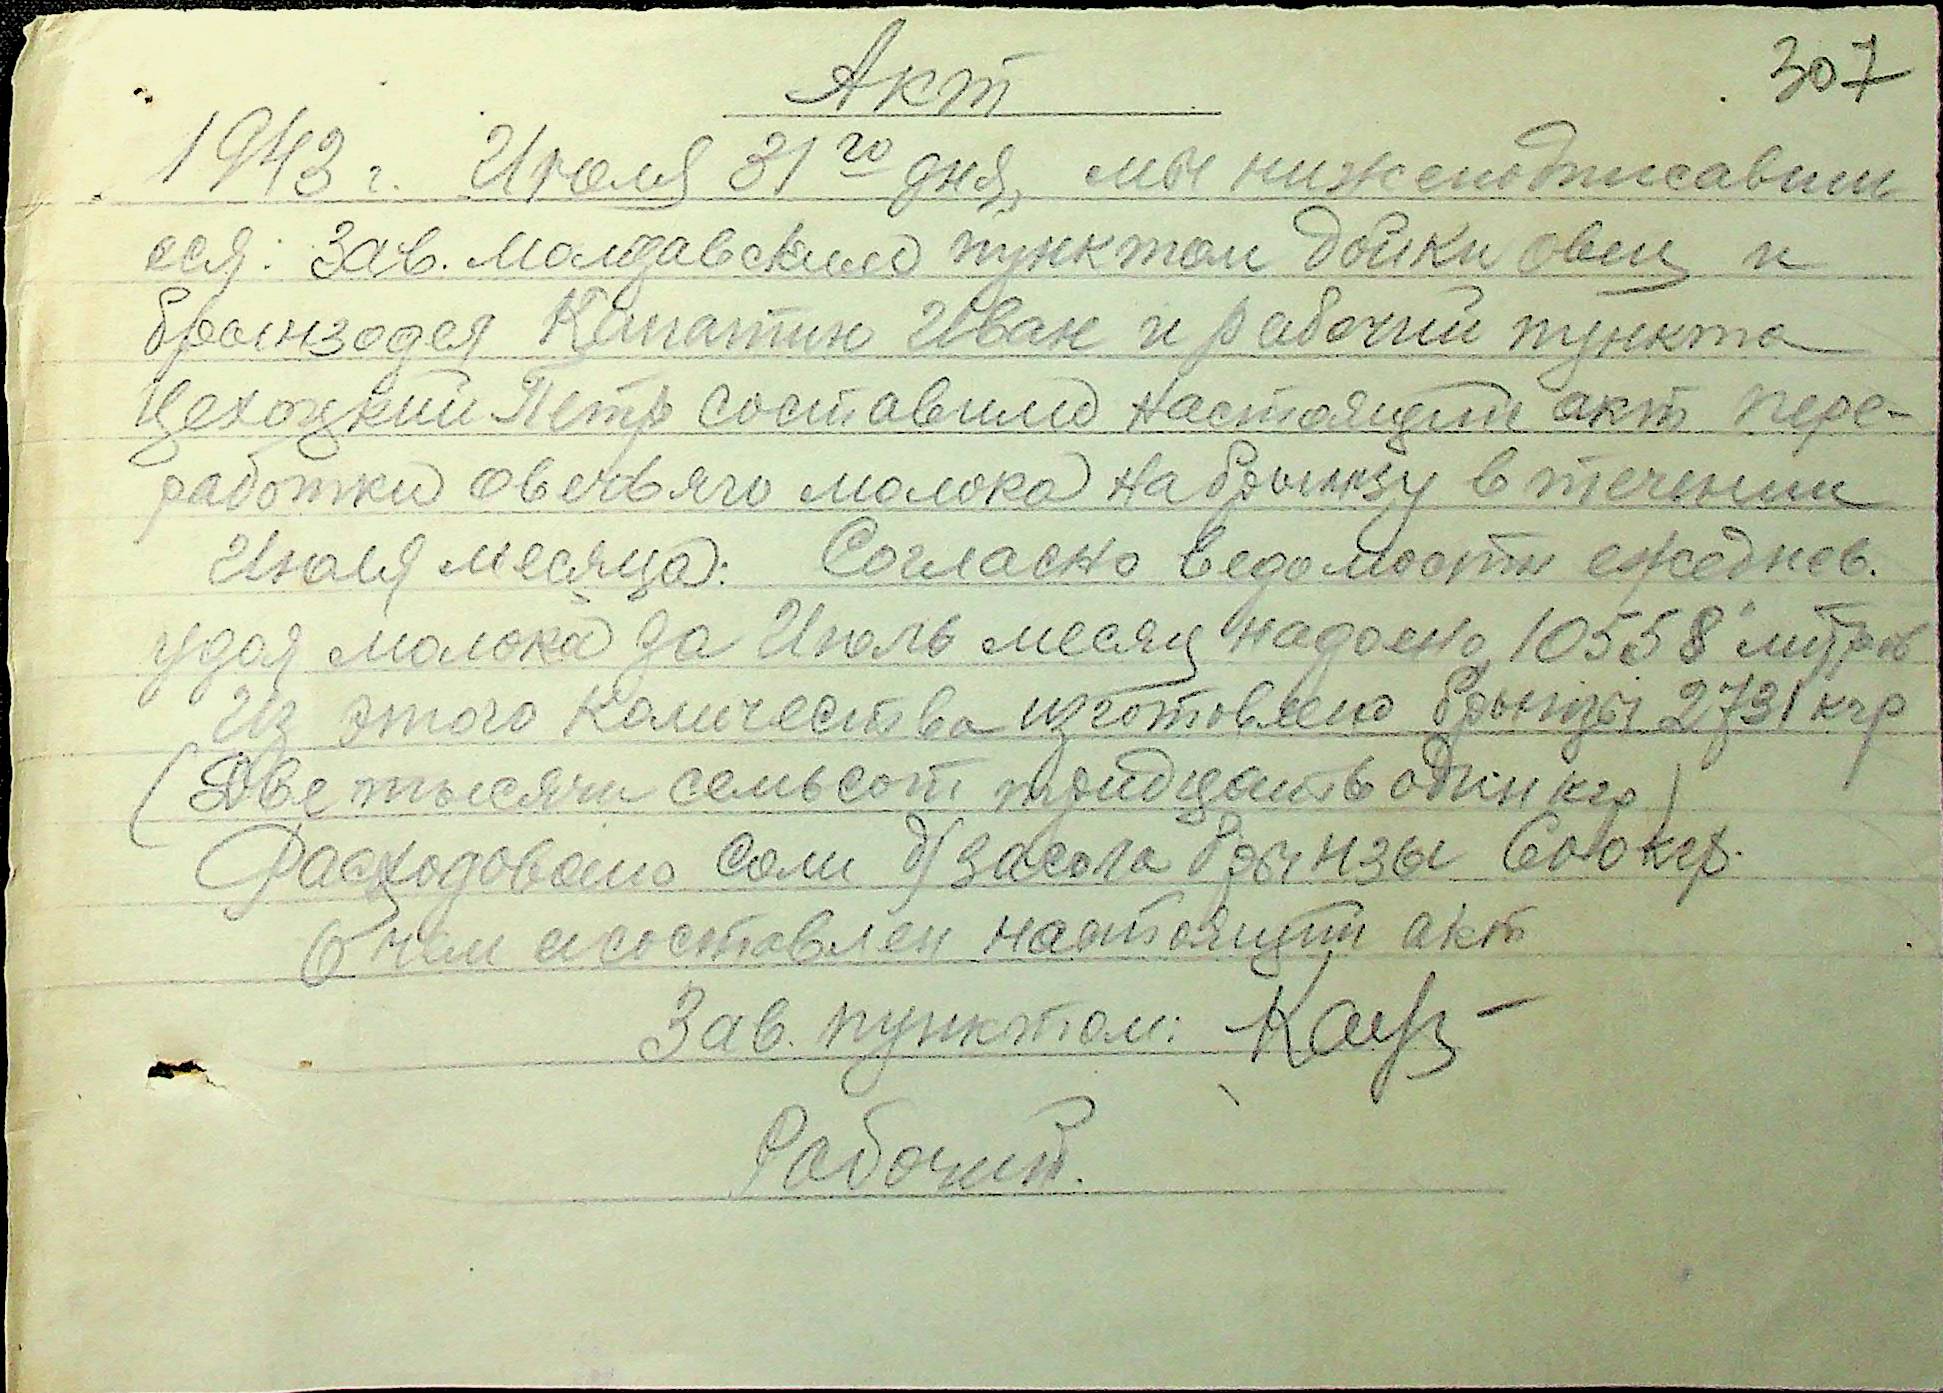 307
Акт
1943 г. Июля 31го дня, мы нижеподписавши
еся: Зав. Молдавским пунктом дойки овец и
брынзодел Иван и рабочий пункта
Цехоцкий Петр составили настоящий акт пере-
работки овечьяго молока на брынзу в течении
Июля месяца: Согласно ведомости ежеднев.
удоя молока за Июль месяц надоено 10558 литров
Из этого количества изготовлено брынзы 2731 кгр
(Две тысячи семьсот тридцать один кгр)
Расходовано соли д/засола брынзы 600 кгр.
О чем и составлен настоящий акт
Зав. пунктом:
Рабочий.